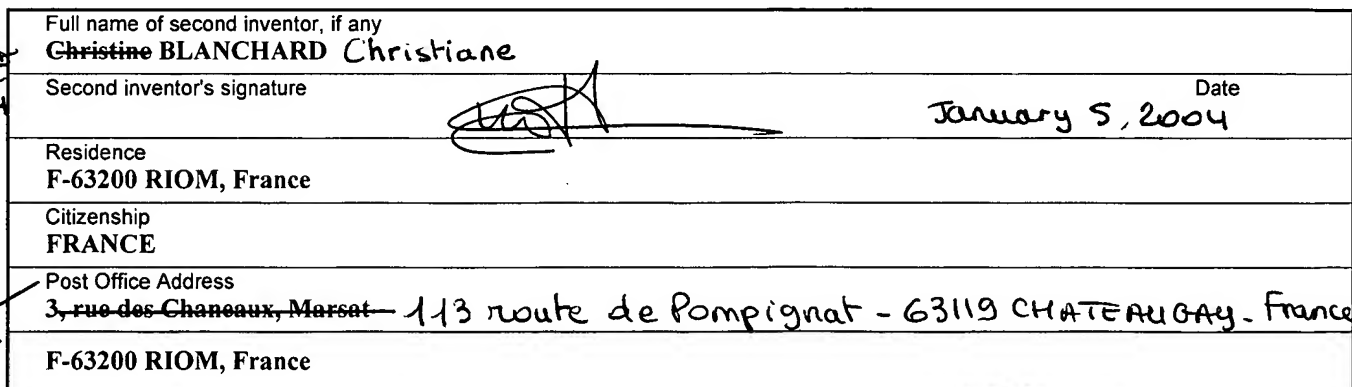 Full name of second inventor, if any
Christine BLANCHARD Christiane
Second inventor's signature Date
January 5, 2004
Residence
F-63200 RIOM, France
Citizenship
FRANCE
Post Office Address
3, rue des Chaneaux, Marsat 113 route de Pompignat - 63119 CHATEAUGAY - France
F-63200 RIOM, France